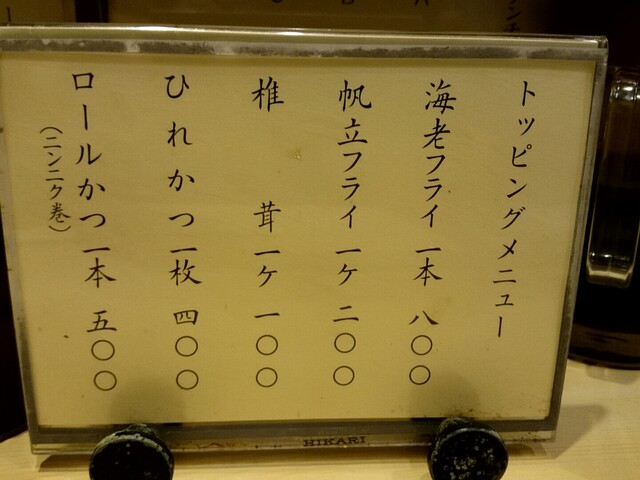 トッピングメニュー
海老フライ一本 八〇〇
帆立フライ一ケ 二〇〇
椎茸一ケ 一〇〇
ひれかつ一枚 四〇〇
ロールかつ一本 五〇〇
(ニンニク巻)
HIKARI